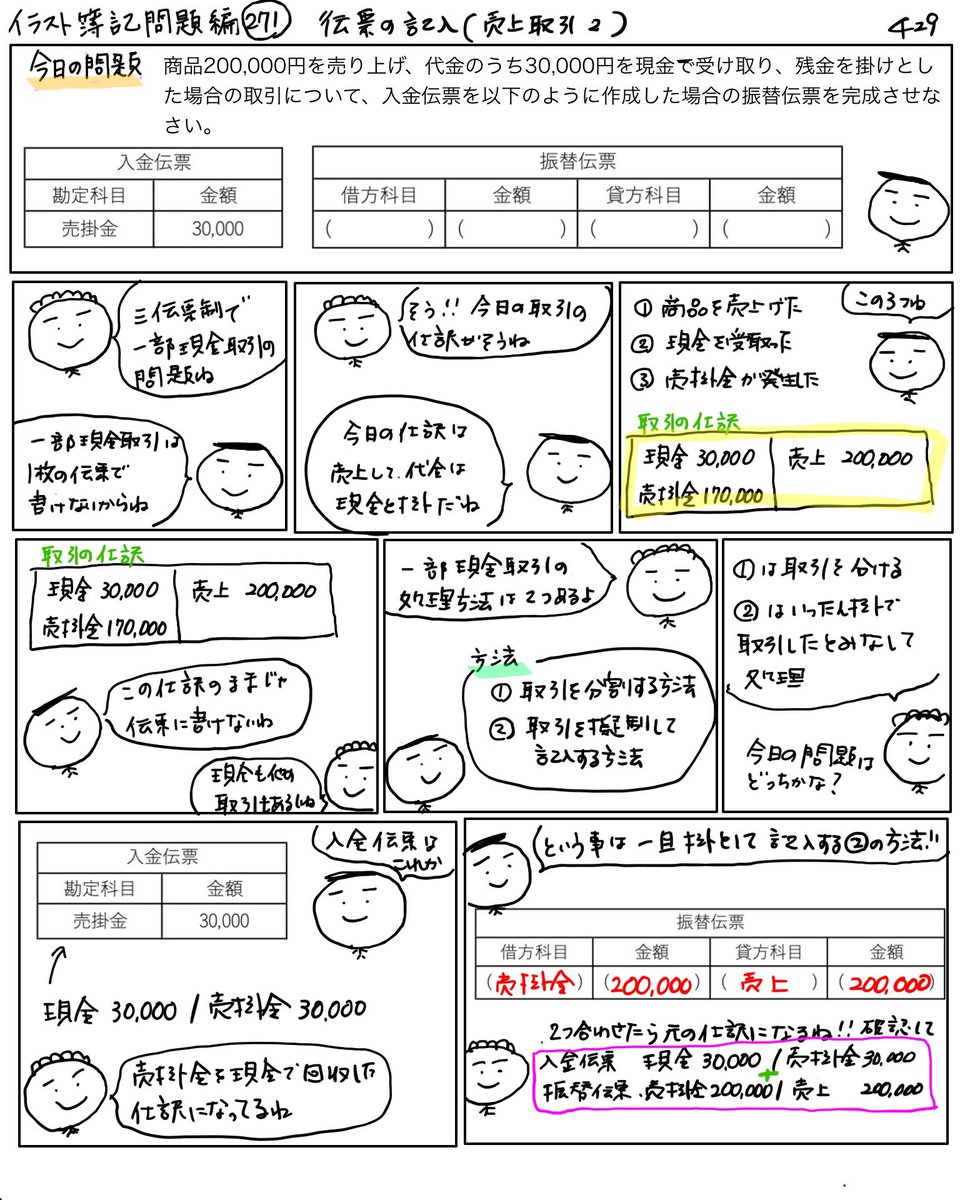 イラスト簿記問題編271 伝票の記入(売上取引2) 4-29
今日の問題
商品200,000円を売り上げ、代金のうち30,000円を現金で受け取り、残金を掛けとし
た場合の取引について、入金伝票を以下のように作成した場合の振替伝票を完成させな
さい。
入金伝票
勘定科目 金額
売掛金 30,000
振替伝票
借方科目 金額 貸方科目 金額
( ) ( ) ( ) ( )
三伝票制で
一部現金取引の
問題ね
一部現金取引は
1枚の伝票で
書けないからね
そう!!今日の取引の
仕訳がそうね
今日の仕訳は
売上して、代金は
現金と掛けだね
① 商品を売上げた
② 現金を受取った
③ 売掛金が発生した
この3つね
取引の仕訳
現金 30,000 売上 200,000
売掛金 170,000
取引の仕訳
現金 30,000 売上 200,000
売掛金 170,000
この仕訳のままじゃ
伝票に書けないね
現金も他の
取引もあるしね
一部現金取引の
処理方法は2つあるよ
方法
① 取引を分割する方法
② 取引を擬制して
記入する方法
①は取引を分ける
②はいったん掛けで
取引したとみなして
処理
今日の問題は
どっちかな?
入金伝票
勘定科目 金額
売掛金 30,000
入金伝票は
これか
現金 30,000 / 売掛金 30,000
売掛金を現金で回収した
仕訳になってるね
という事は一旦掛として記入する②の方法!!
振替伝票
借方科目 金額 貸方科目 金額
(売掛金) (200,000) (売上) (200,000)
2つ合わせたら元の仕訳になるね!!確認して
入金伝票 現金 30,000 / 売掛金 30,000
+
振替伝票 売掛金 200,000 / 売上 200,000